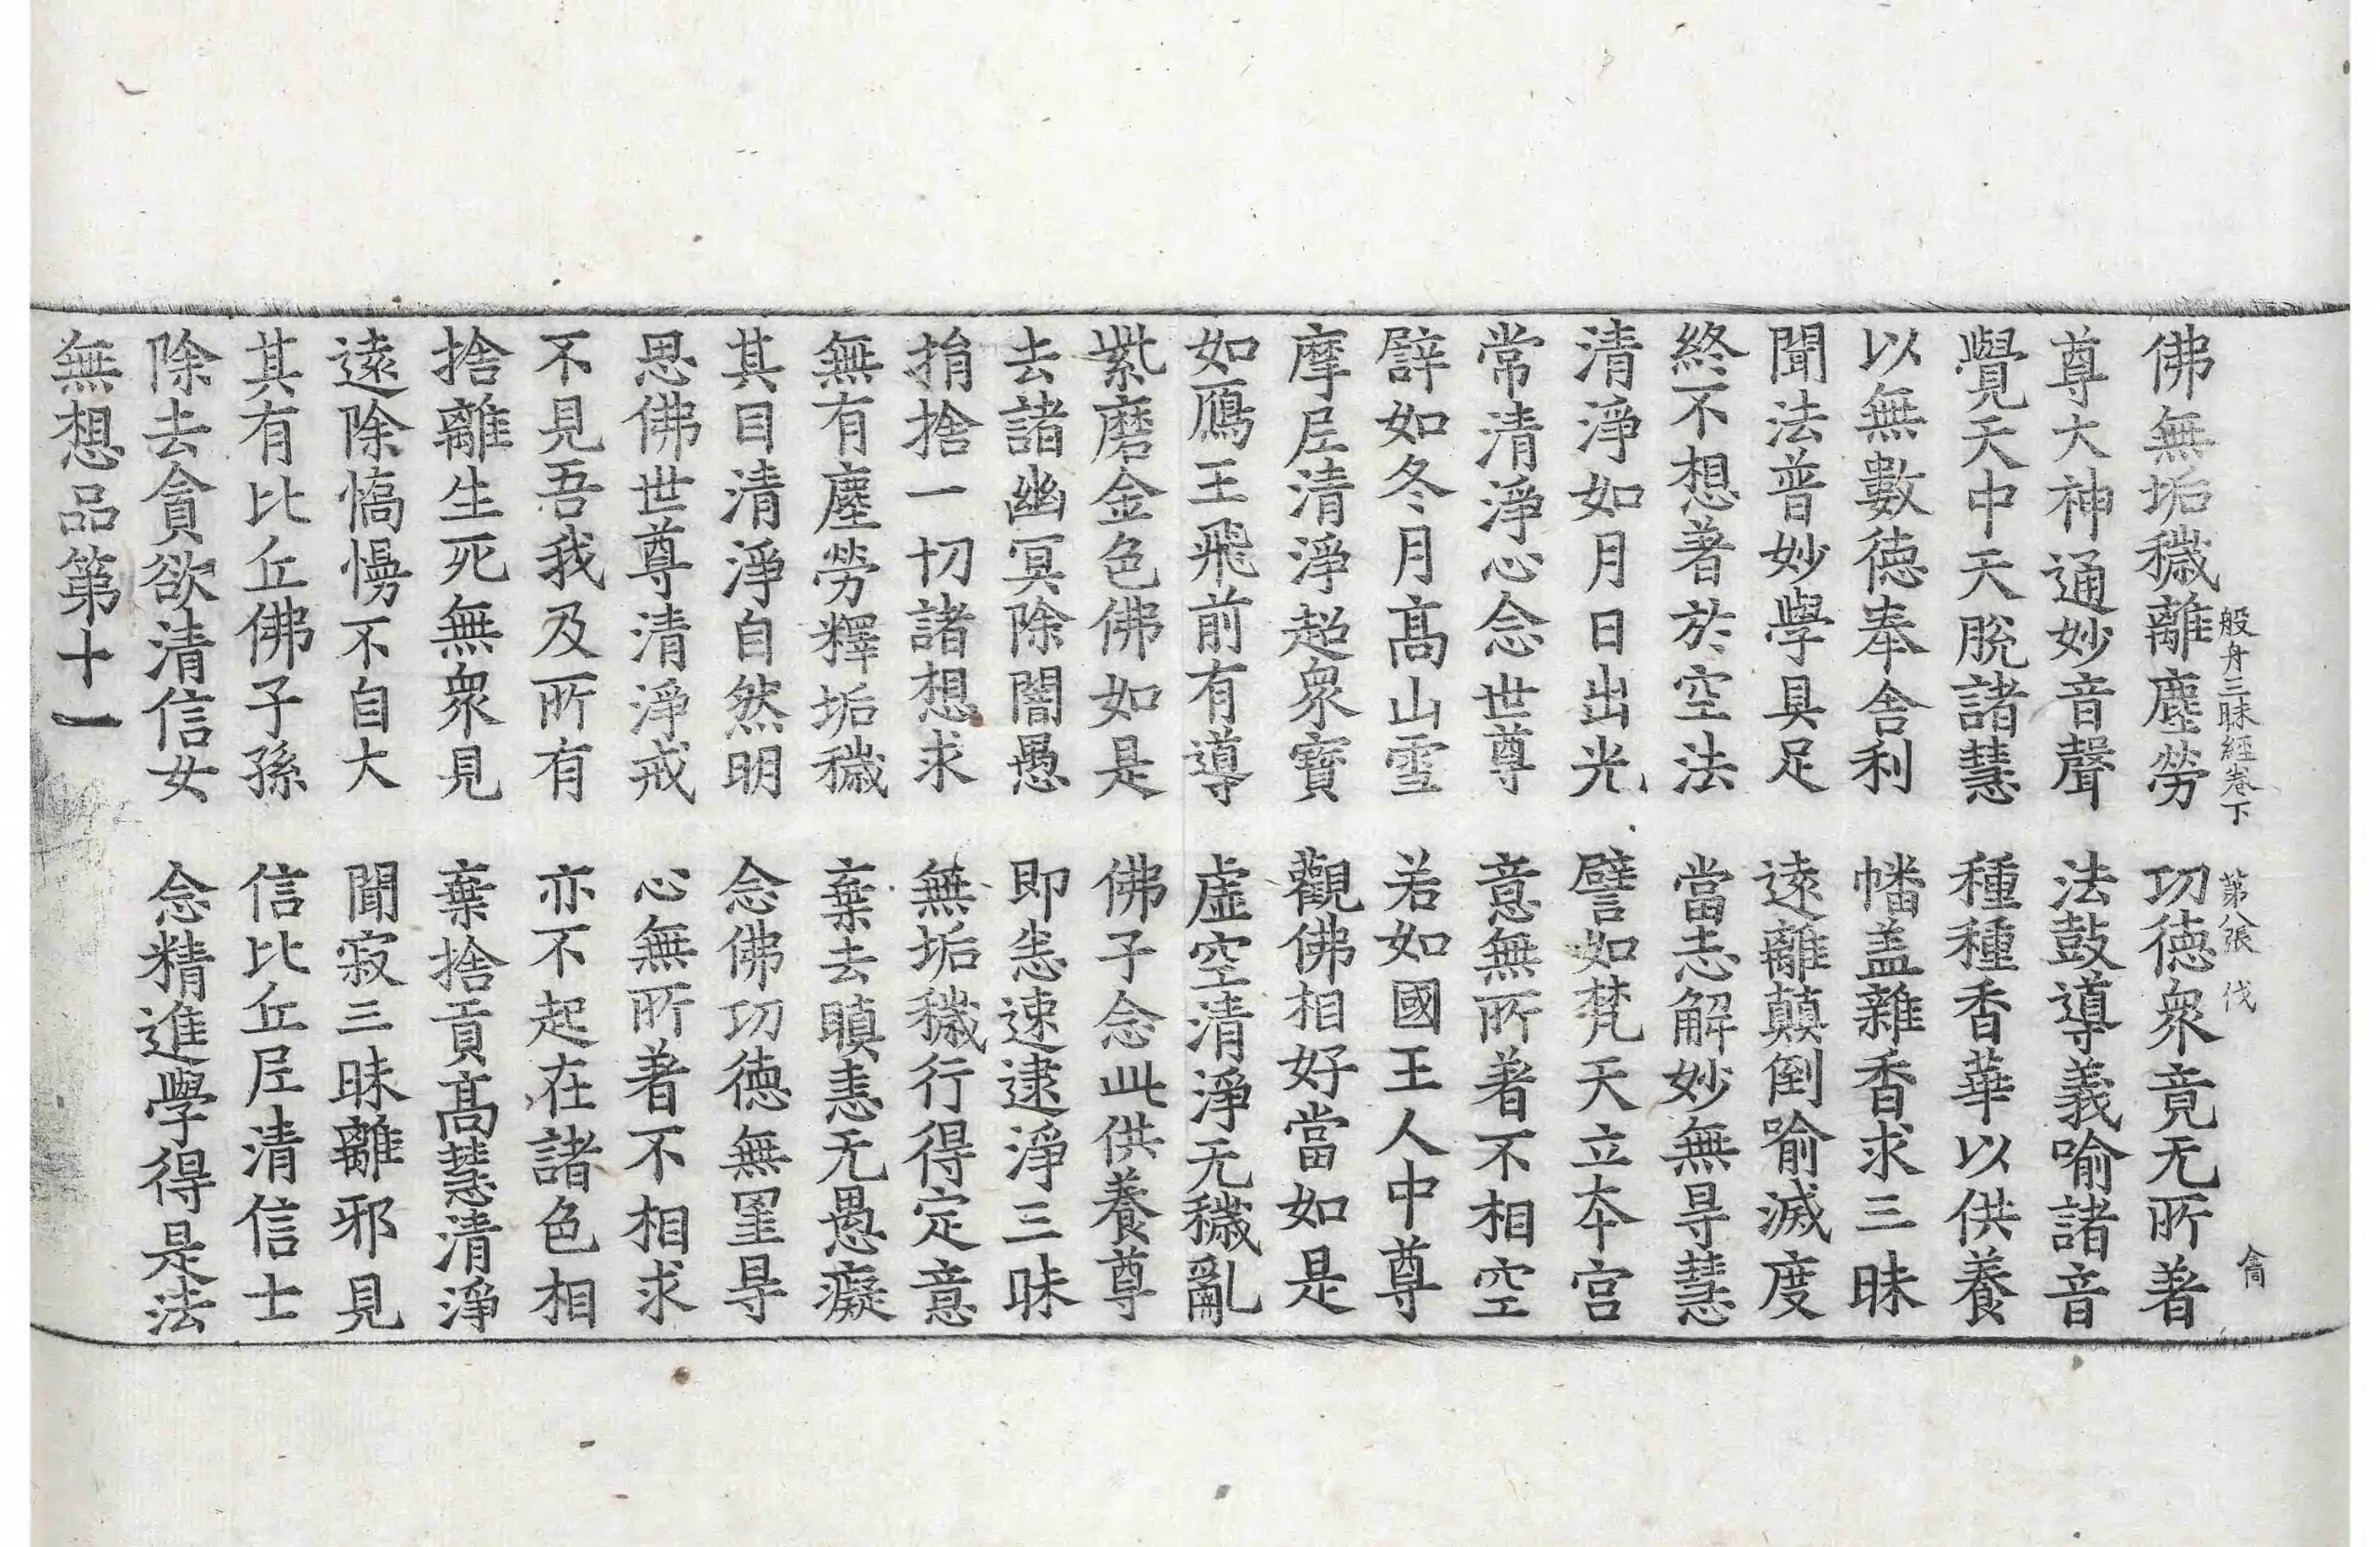 般舟三昧經卷下 第八張 伐
佛無垢穢離塵勞 功德衆竟无所著
尊大神通妙音聲 法鼓導義喻諸音
覺天中天脫諸慧 種種香華以供養
以無數德奉舍利 幡盖雜香求三昧
聞法普妙學具足 遠離顛倒喻滅度
終不想著於空法 當志解妙無㝵慧
清淨如月日出光 譬如梵天立本宮
常清淨心念世尊 意無所著不相空
辟如冬月高山雪 若如國王人中尊
摩尼清淨超衆寶 觀佛相好當如是
如鴈王飛前有導 虛空清淨无穢亂
紫磨金色佛如是 佛子念此供養尊
去諸幽冥除闇愚 即恙速逮淨三昧
捐捨一切諸想求 無垢穢行得定意
無有塵勞釋垢穢 棄去瞋恚无愚癡
其目清淨自然明 念佛功德無罣㝵
思佛世尊清淨戒 心無所著不相求
不見吾我及所有 亦不起在諸色相
捨離生死無衆見 棄捨貢高慧清淨
遠除憍慢不自大 聞寂三昧離邪見
其有比丘佛子孫 信比丘尼清信士
除去貪欲清信女 念精進學得是法
無想品第十一